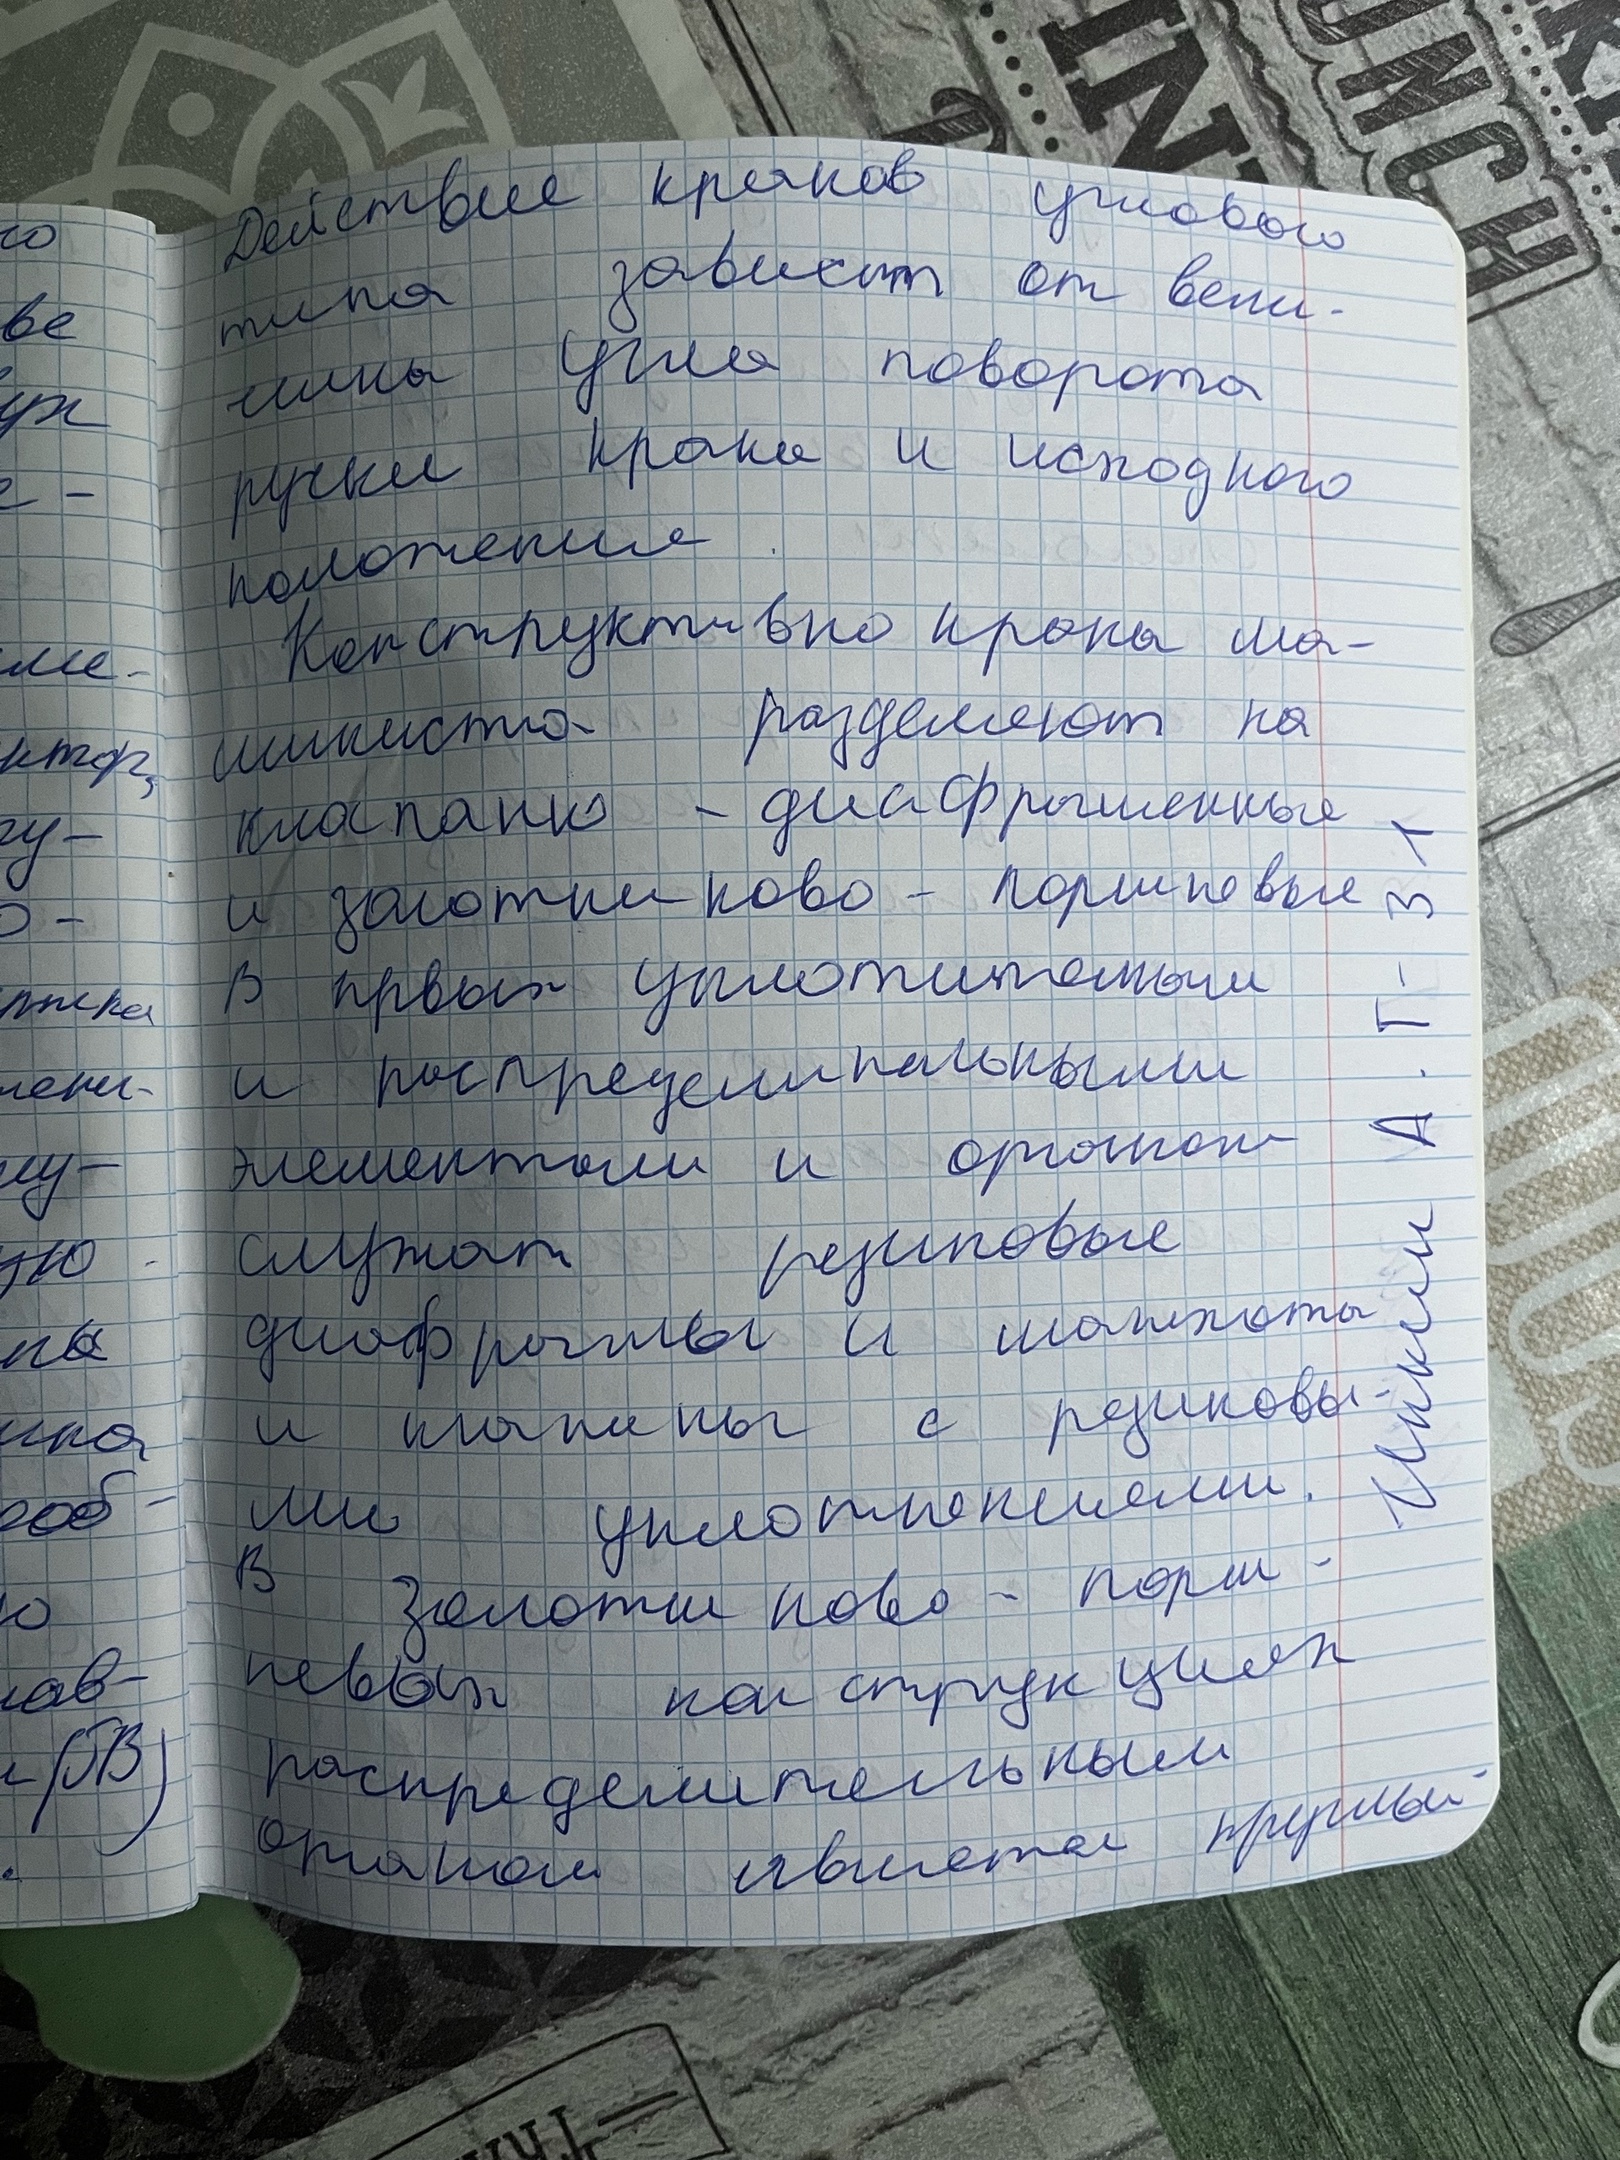 Действие кранов углового
типа зависит от вели-
чины угла поворота
ручки крана и исходного
положения.
Конструктивно крана ма-
шиниста разделяют на
клапанно - диафрагменные
и золотниково - поршневые
В првых уплотительными
и распределительными
элементами и органом
служат резиновые
диафрагмы и манжеты
и клапаны с резиновы-
ми уплотнениями.
В золотниково - порш-
невых конструкциях
распределительным
органом является круглый
А. Т-31
го
ве
уж
е-
ме-
ктор,
гу-
о-
лени-
му-
ую
на
ика
ооб-
ю
лав-
(ТВ)
IN
UNCH